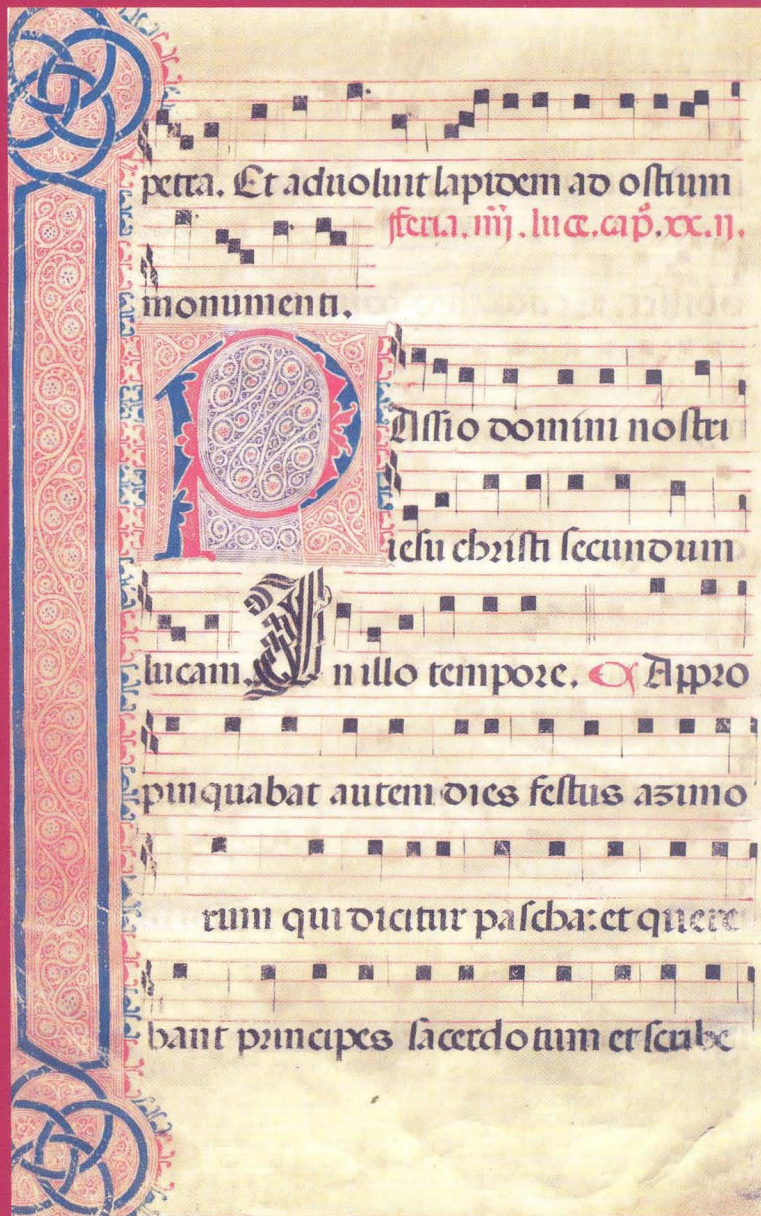 petra. Et aduoluit lapidem ad ostium
fferia. iiij. luce. cap̊. xx.ij.
monumenti.
PAssio domini nostri
iesu christi secundum
lucam. In illo tempore. Appro
pinquabat autem dies festus azimo
rum qui dicitur pascha: et quere
bant principes sacerdotum et scribe